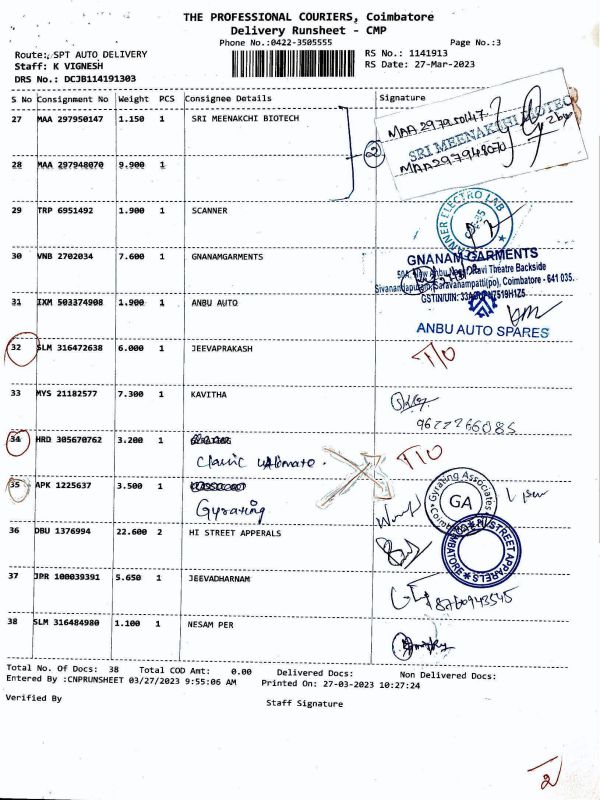 THE PROFESSIONAL COURIERS, Coimbatore
Delivery Runsheet - CMP
Phone No.:0422-3505555 Page No.:3
Route:, SPT AUTO DELIVERY RS No.: 1141913
Staff: K VIGNESH RS Date: 27-Mar-2023
DRS No.: DCJB114191303
S No Consignment No Weight PCS Consignee Details Signature
27 MAA 297950147 1.150 1 SRI MEENAKCHI BIOTECH
MAA 297950147
SRI MEENAKCHI BIOTEC
2
MAA 297948070
28 MAA 297948070 9.900 1
29 TRP 6951492 1.900 1 SCANNER
30 VNB 2702034 7.600 1 GNANAMGARMENTS
GNANAM GARMENTS
Theatre Backside
Saravanampatti(po), Coimbatore - 641 035.
31 IXM 503374908 1.900 1 ANBU AUTO
ANBU AUTO SPARES
32 SLM 316472638 6.000 1 JEEVAPRAKASH T/O
33 MYS 21182577 7.300 1 KAVITHA
34 HRD 305670762 3.200 1 T/O
Classic
35 APK 1225637 3.500 1
Gyrating
Gyrating Associates
GA
36 DBU 1376994 22.600 2 HI STREET APPERALS
STREET APPARELS
COIMBATORE
37 JPR 100039391 5.650 1 JEEVADHARNAM
8760943545
38 SLM 316484980 1.100 1 NESAM PER
Total No. Of Docs: 38 Total COD Amt: 0.00 Delivered Docs: Non Delivered Docs:
Entered By :CNPRUNSHEET 03/27/2023 9:55:06 AM Printed On: 27-03-2023 10:27:24
Verified By Staff Signature
2